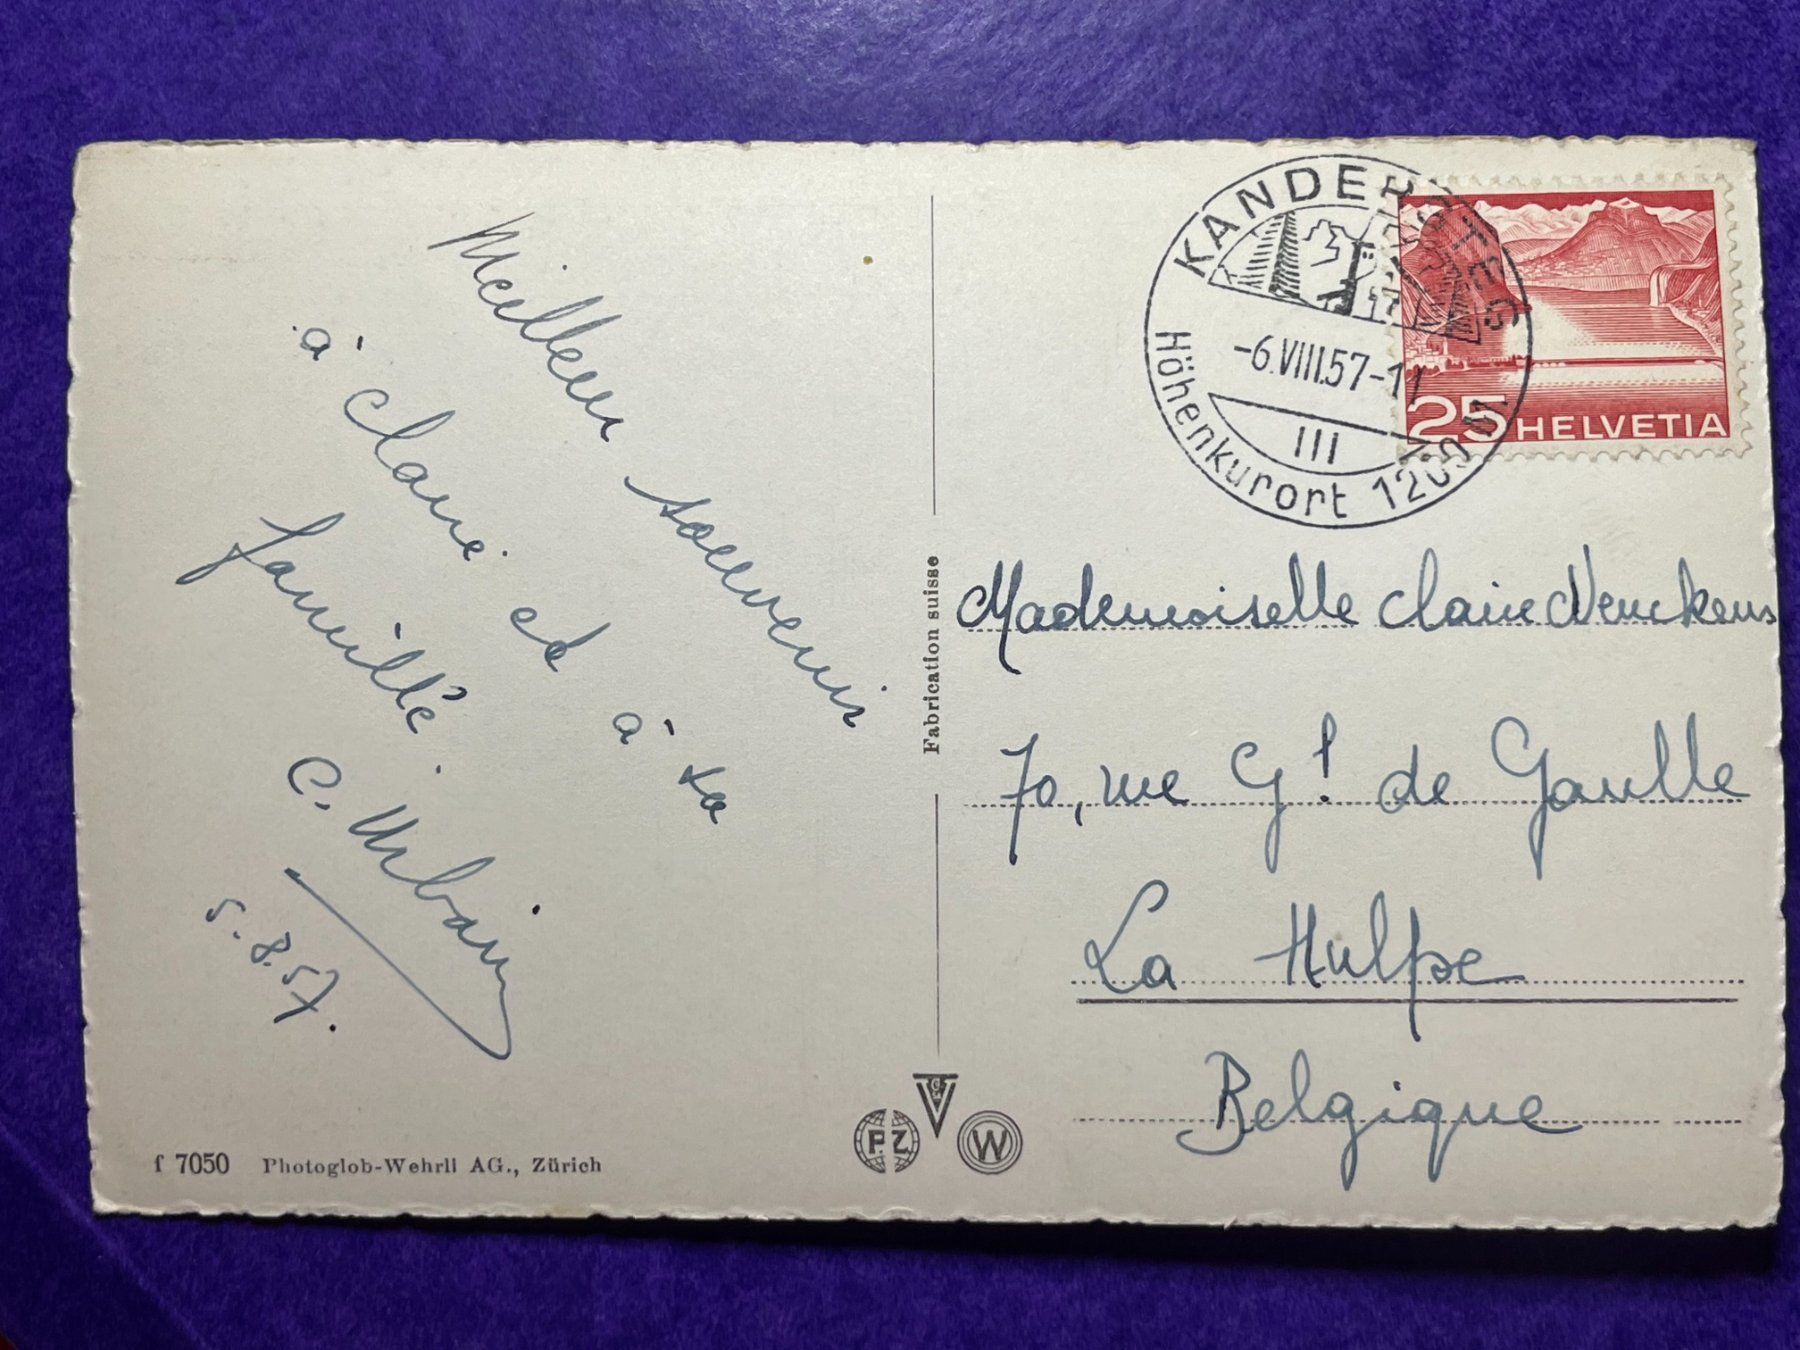 Meilleur souvenir
à Claire et à ta
famille
C. Urbain
5.8.57.
f 7050 Photoglob-Wehrli AG., Zürich
Fabrication suisse
P.Z
W
KANDERSTEG
-6.VIII.57-11
III
Höhenkurort 1200 m
25 HELVETIA
Mademoiselle Claire
70, rue Gl. de Gaulle
La Hulpe
Belgique